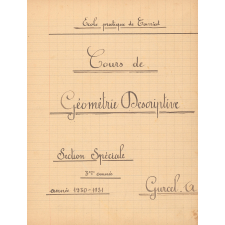 École pratique de
Cours de
Géométrie Descriptive
Section Spéciale
3me année
année 1930-1931
Gurcel. A